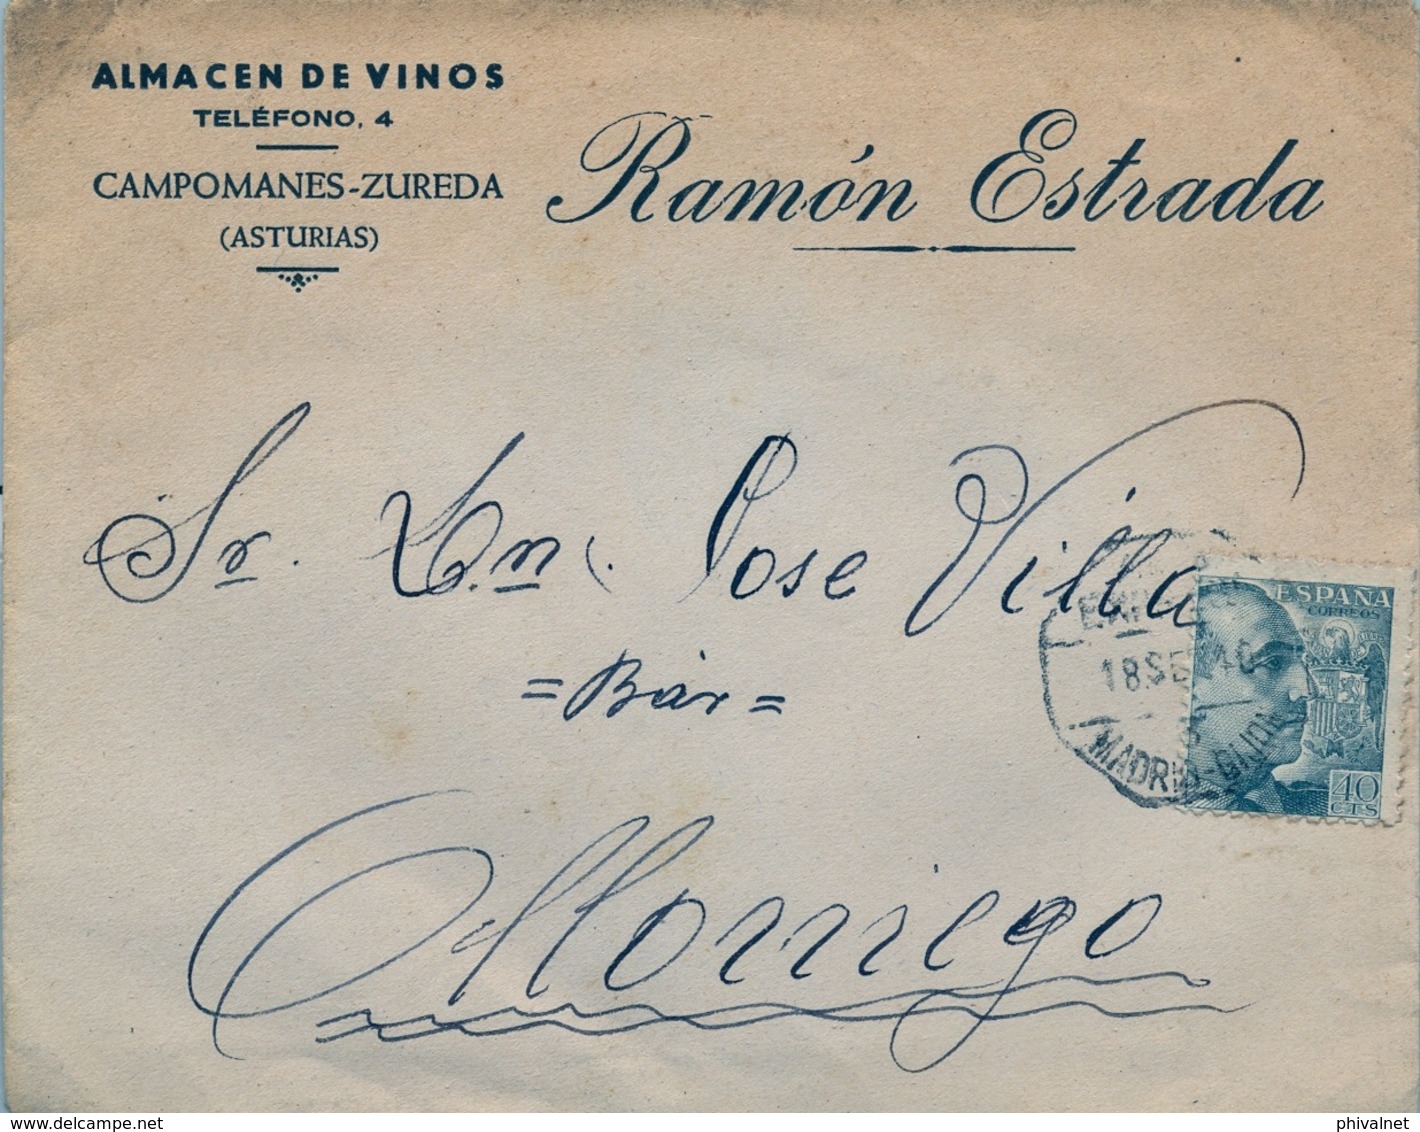 ALMACEN DE VINOS
TELÉFONO, 4
CAMPOMANES-ZUREDA
(ASTURIAS)
Ramón Estrada
Sr. Dn. Jose Villa
= Bar =
Morriego
ESPAÑA
CORREOS
18 SEP 40
MADRID-GIJON
40
CTS
www.delcampe.net
phivalnet